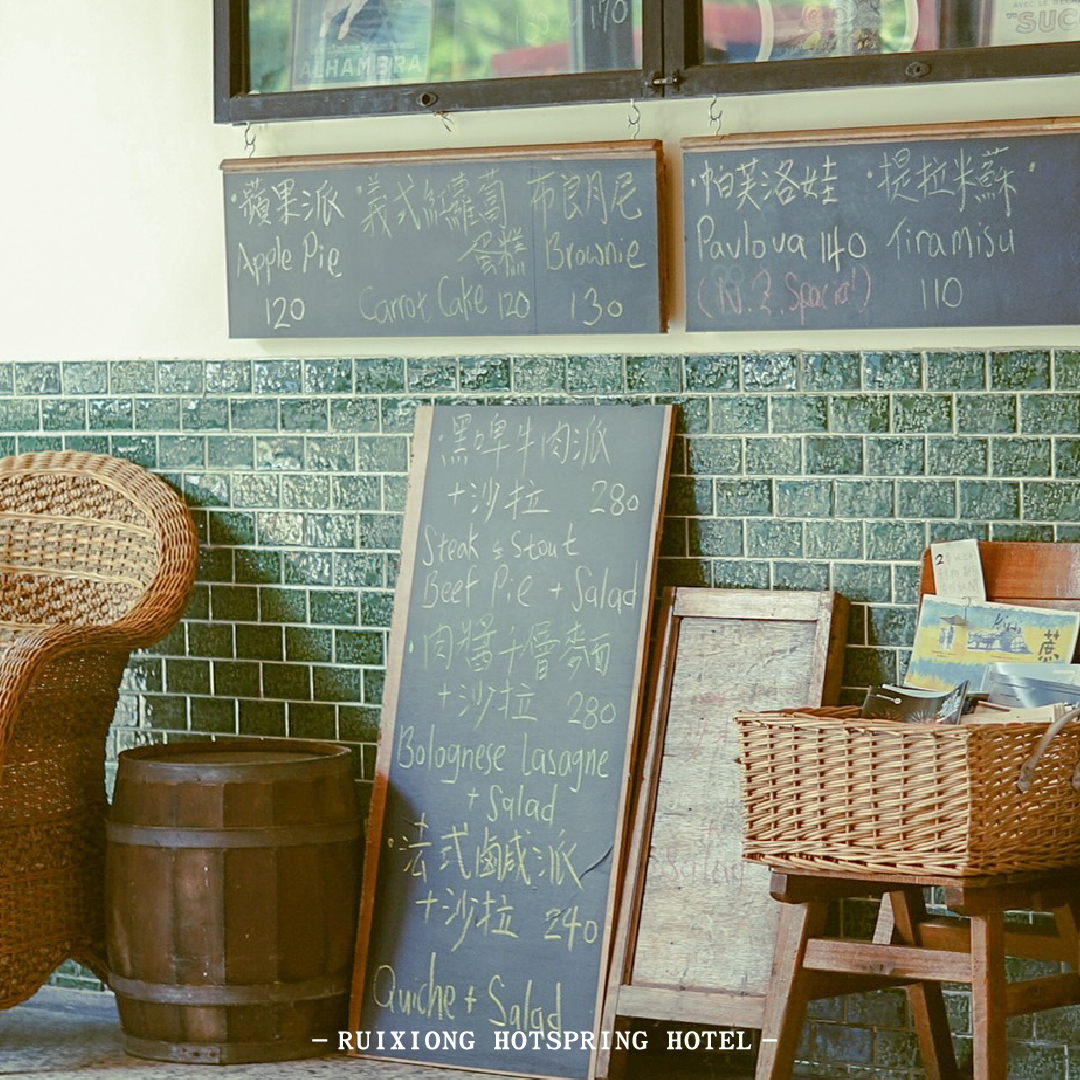 170
ALHAMBRA
"SUC
·蘋果派
Apple Pie
120
·義式紅蘿蔔
蛋糕
Carrot Cake 120
布朗尼
Brownie
130
·帕芙洛娃
Pavlova 140
(N.Z. Special)
·提拉米蘇·
Tiramisu
110
·黑啤牛肉派
+沙拉 280
Steak & Stout
Beef Pie + Salad
·肉醬千層麵
+沙拉 280
Bolognese Lasagne
+ Salad
·法式鹹派
+沙拉 240
Quiche + Salad
2
蔗
– RUIXIONG HOTSPRING HOTEL –